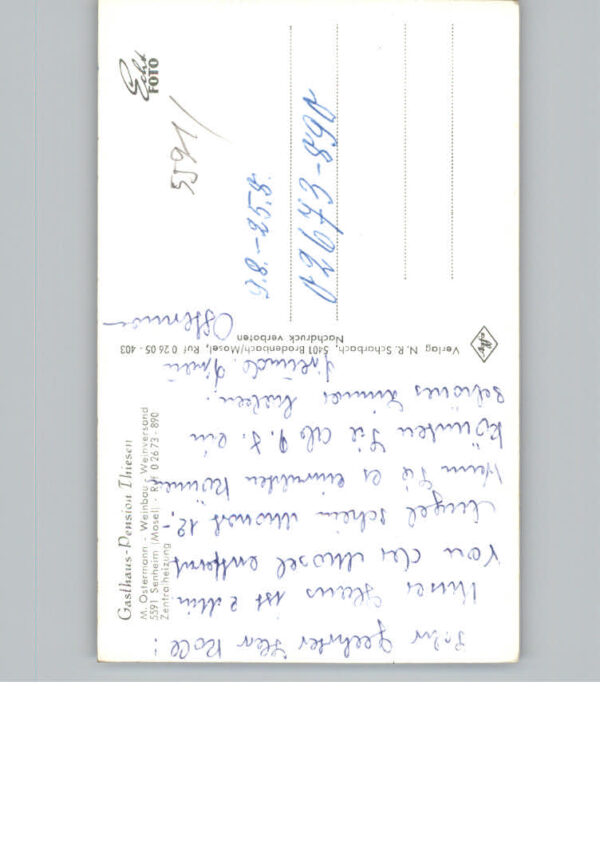 Gasthaus-Pension Thiesen
M. Ostermann - Weinbau - Weinversand
5591 Senheim (Mosel) - Ruf 0 26 73 - 890
Zentralheizung
Sehr geehrter Herr Noll!
Unser Haus ist 2 Min
von der Mosel entfernt
Wenn Sie es einrichten können
könnten Sie ab 9.8. ein
schönes Zimmer haben.
Freundl.
Ostermann
Verlag N. R. Scharbach, 5401 Brodenbach/Mosel, Ruf 0 26 05 - 403
Nachdruck verboten
Echt
FOTO
5591/
9.8.-25.8.
02673-890